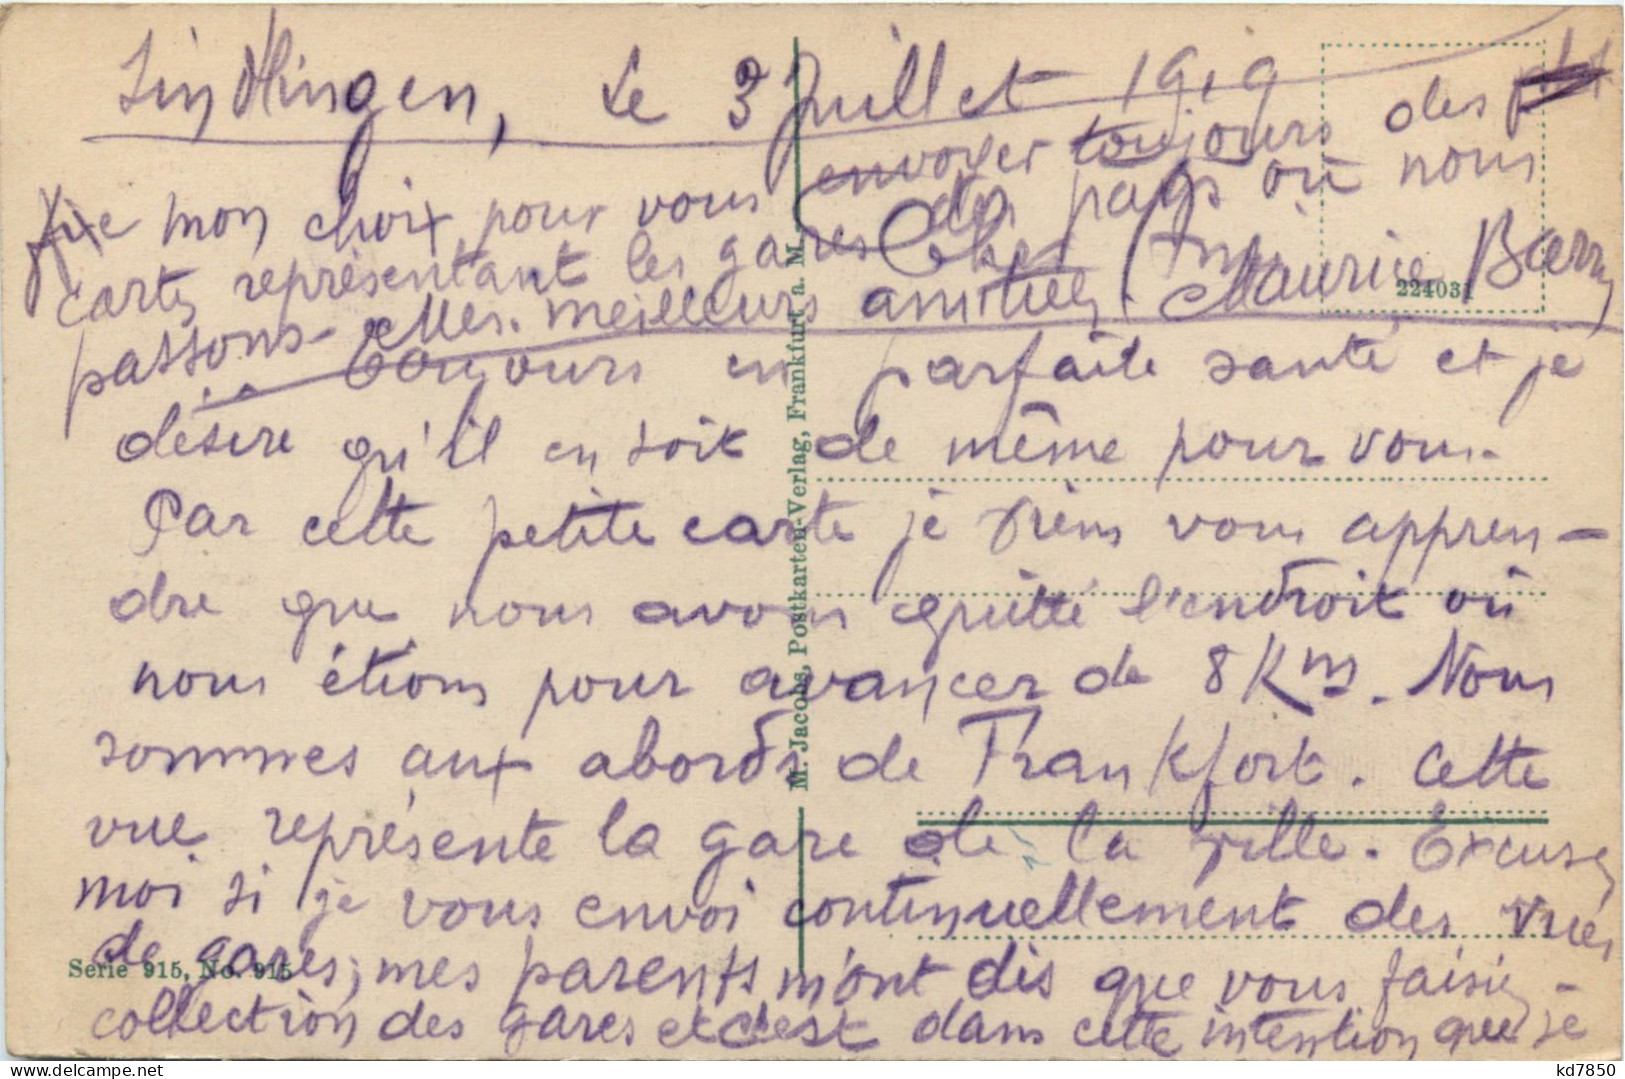 Sindlingen, le 3 Juillet 1919
toujours en parfaite santé et je
désire qu'il en soit de même pour vous.
Par cette petite carte je viens vous appren-
dre que nous avons quitté l'endroit où
nous étions pour avancer de 8 Kms. Nous
sommes aux abords de Frankfort. Cette
vue représente la gare de la ville. Excusez
moi si je vous envoi continuellement des vues
de gares; mes parents m'ont dis que vous faisiez
collection des gares et c'est dans cette intention que je
fixe mon choix pour vous envoyer toujours des
cartes représentant les gares des pays où nous
passons. Mes meilleurs amitiés. Maurice Barry
224031
M. Jacobs, Postkarten-Verlag, Frankfurt a. M.
Serie 915, No. 915
kd7850